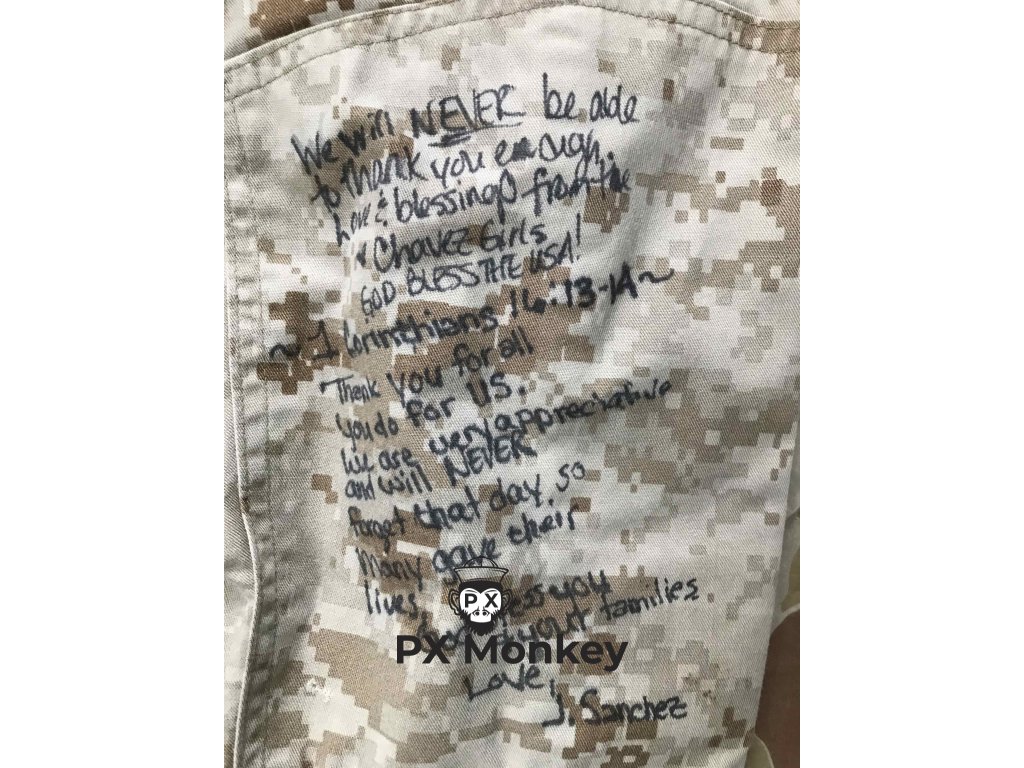 We will NEVER be able
to thank you enough.
Love & blessings from the
Chavez Girls
GOD BLESS THE USA!
~ 1 Corinthians 16:13-14 ~
Thank you for all
you do for US.
We are very appreciative
and will NEVER
forget that day, so
many gave their
lives.
you
families
PX
PX Monkey
Love,
J. Sanchez